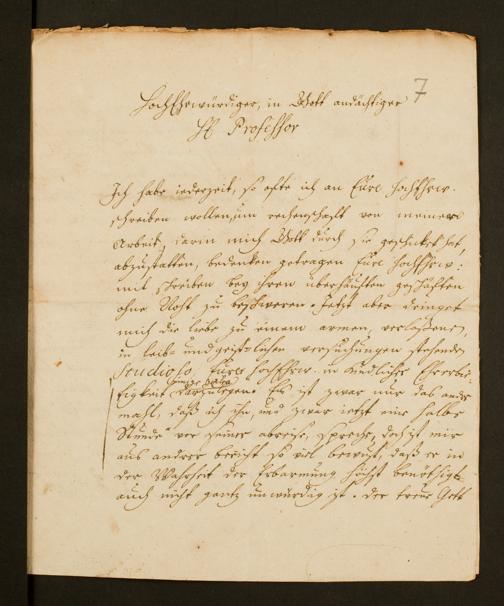 7
HochEhrwürdiger, in Gott andächtiger
H Professor
Ich habe iederzeit, so ofte ich an Eure HochEhrw.
schreiben wollen, um rechenschafft von meiner
Arbeit, darin mich Gott durch sie geschicket hat,
abzustatten, bedencken getragen Eure HochEhrw:
mit schreiben bey ihren überhäufften geschäfften
ohne Noht zu beschweren. Jetzt aber dringet
mich die liebe zu einem armen, verlaßenen,
in leib- und geistlichen versuchungen stehenden
Studioso, Eurer HochEhrw. in kindlicher Ehrerbie-
tigkeit darzulegen. Es ist zwar nur das andre
mahl, daß ich ihn, und zwar ietzt eine halbe
Stunde vor seiner abreise, spreche, doch ist mir
aus andrer bericht so viel bewust, daß er in
der Wahrheit der Erbarmung höchst benöthigt,
auch nicht gantz unwürdig ist. Der treue Gott